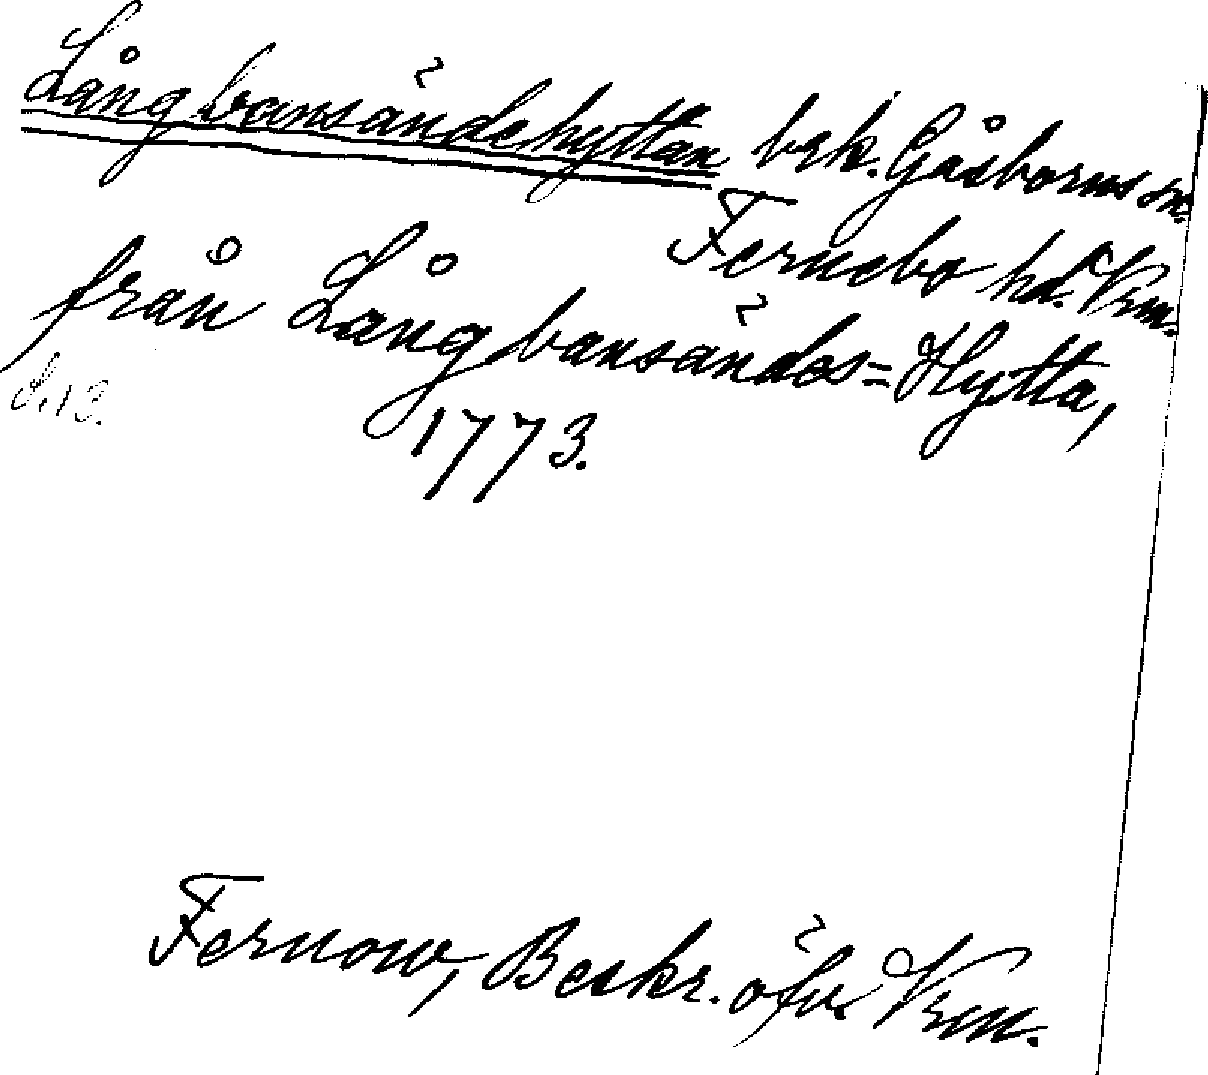 Långbansändehyttan brk. Gåsborns sn.
Fernebo hd. Vrm.
från Långbansändes=Hytta,
1773.
Fernow, Beskr. öfv. Vrm.